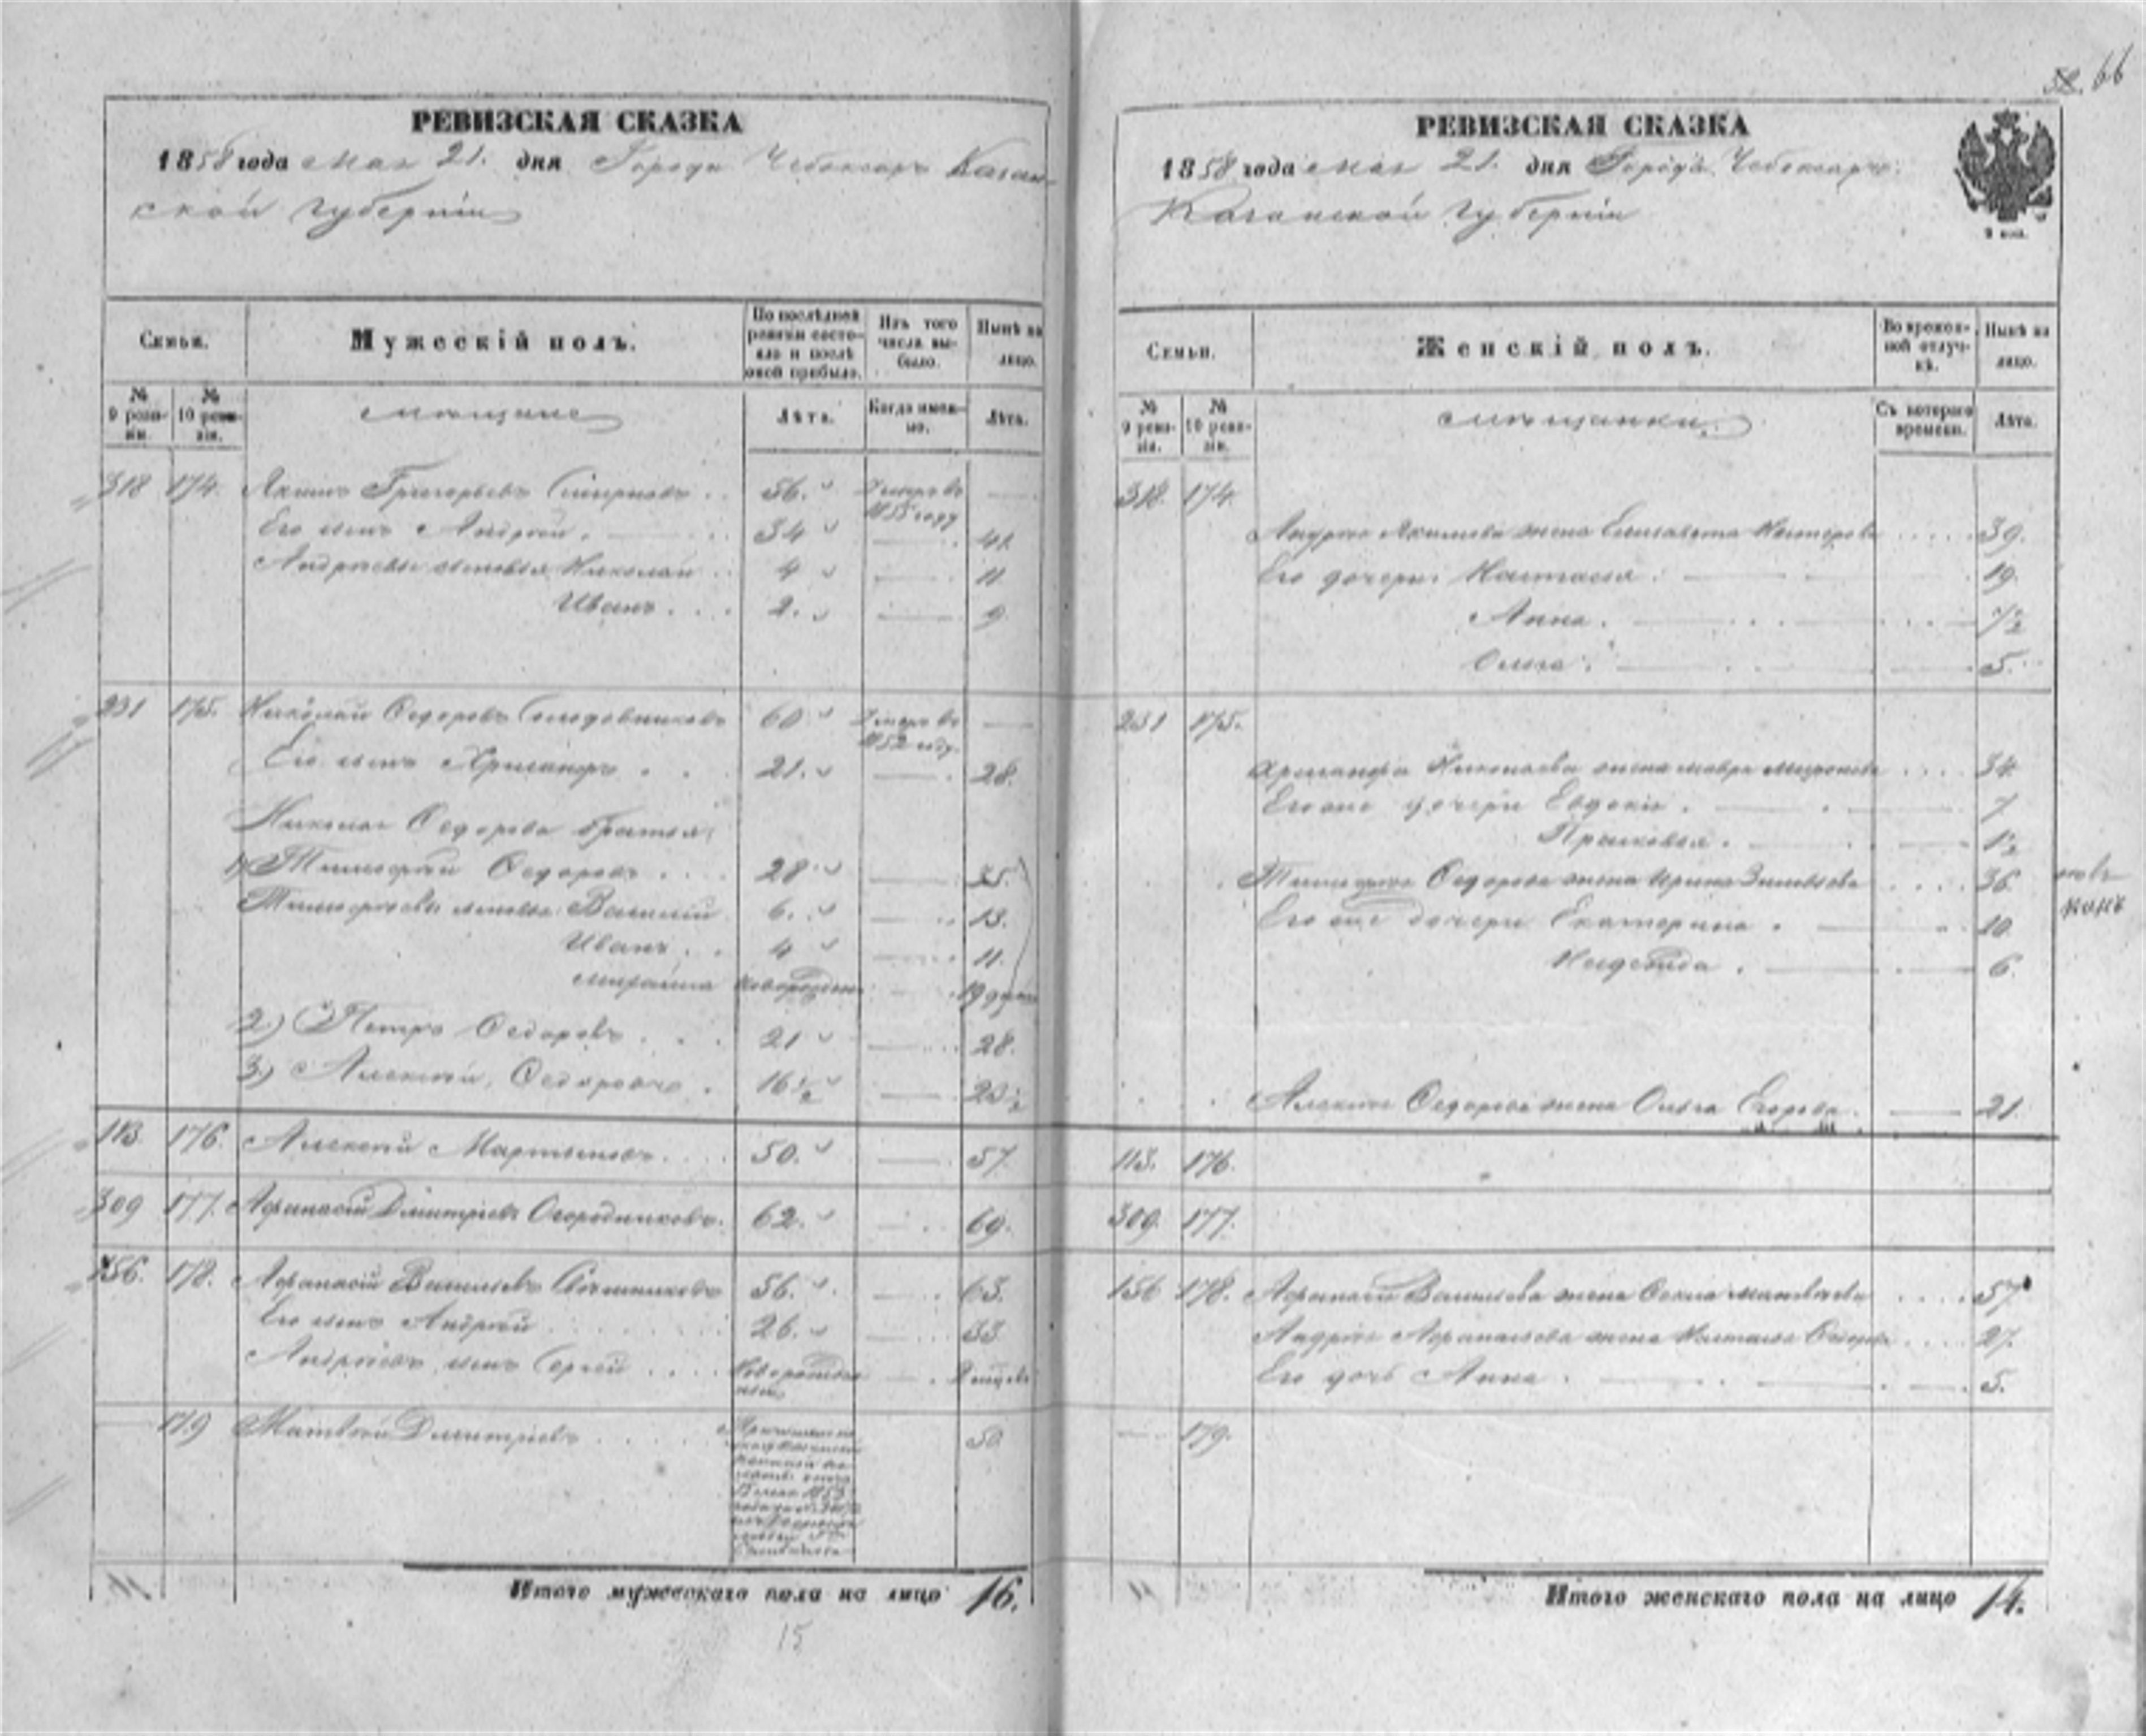 58. 66
РЕВИЗСКАЯ СКАЗКА
1858 года мая 21. дня Города Чебоксаръ Казан-
ской губерніи
Семьи.
Мужескій полъ.
По послѣдней ревизіи состояло и послѣ оной прибыло.
Изъ того числа выбыло.
Нынѣ на лицо.
№ 9 ревизіи.
№ 10 ревизіи.
мѣщане
Лѣта.
Когда именно.
Лѣта.
318 174. Якимъ Григорьевъ Смирновъ 56. Умеръ въ 1855 году
Его сынъ Андрей 34 41.
Андреевы сыновья Николай 4 11
Иванъ 2. 9
231 175. Николай Ѳедоровъ Солодовниковъ 60 Умеръ въ 1852 году
Его сынъ Хрисанфъ 21. 28.
Николая Ѳедорова братья:
1) Тимофей Ѳедоровъ 28 35.
Тимофеевы сыновья Василій 6. 13.
Иванъ 4 11.
Михайла новорожден 19
2) Петръ Ѳедоровъ 21 28.
3) Алексѣй Ѳедоровъ 16½ 23½
113. 176. Алексѣй Мартыновъ 50. 57.
309 177. Афанасій Дмитріевъ Огородниковъ. 62. 69.
156. 178. Афанасій Васильевъ 56. 63.
Его сынъ Андрей 26. 33
Андреевъ сынъ Сергѣй Новорожден
179 Матвей Дмитріевъ 50
Итого мужескаго пола на лицо 16.
15
РЕВИЗСКАЯ СКАЗКА
1858 года мая 21. дня Города Чебоксаръ
Казанской губерніи
Семьи.
Женскій полъ.
Во временной отлучкѣ.
Нынѣ на лицо.
№ 9 ревизіи.
№ 10 ревизіи.
мѣщанки.
Съ котораго времени.
Лѣта.
318. 174.
Андрея Якимова жена Елисавета 39.
Его дочери Настасья 19.
Анна
Ольга 5.
231 175.
Хрисанфа Николаева жена Мавра Миронова 34
Его же дочери Евдокія 7
Прасковья 1½
Тимофея Ѳедорова жена Ирина 36
Его же дочери Екатерина 10.
Надежда 6.
Алексѣя Ѳедорова жена Ольга Егорова 21.
113. 176.
309. 177.
156 178. Афанасія Васильева жена 57
Андрея Афанасьева жена Настасья 27.
Его дочь Анна 5.
179.
Итого женскаго пола на лицо 14.